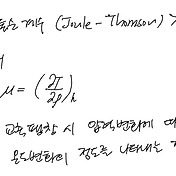 톰슨 계수 (Joule-Thomson)
μ = (∂T/∂p)_h
교축팽창 시 압력변화에 따
온도변화의 정도를 나타내는